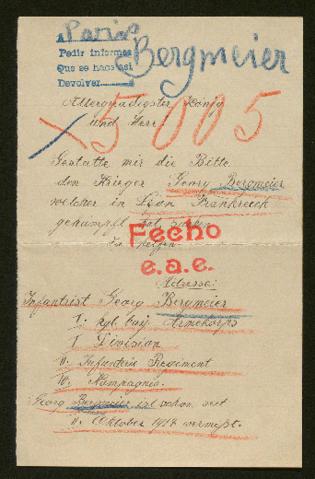 A Paris
Pedir informes
Que se haga así
Devolver
Bergmeier
Allergnädigster König
und Herr!
5005
Gestatte mir die Bitte
den Krieger Georg Bergmeier
welcher in Frankreich
gekämpft hat
zu helfen
Fecho
e.a.e.
Adresse:
Infantrist Georg Bergmeier
I. kgl. bay. Armekorps
I Division
II. Infantrie Regiment
Kompagnie.
Georg Bergmeier ist schon seit
Oktober 1914 vermeßt.